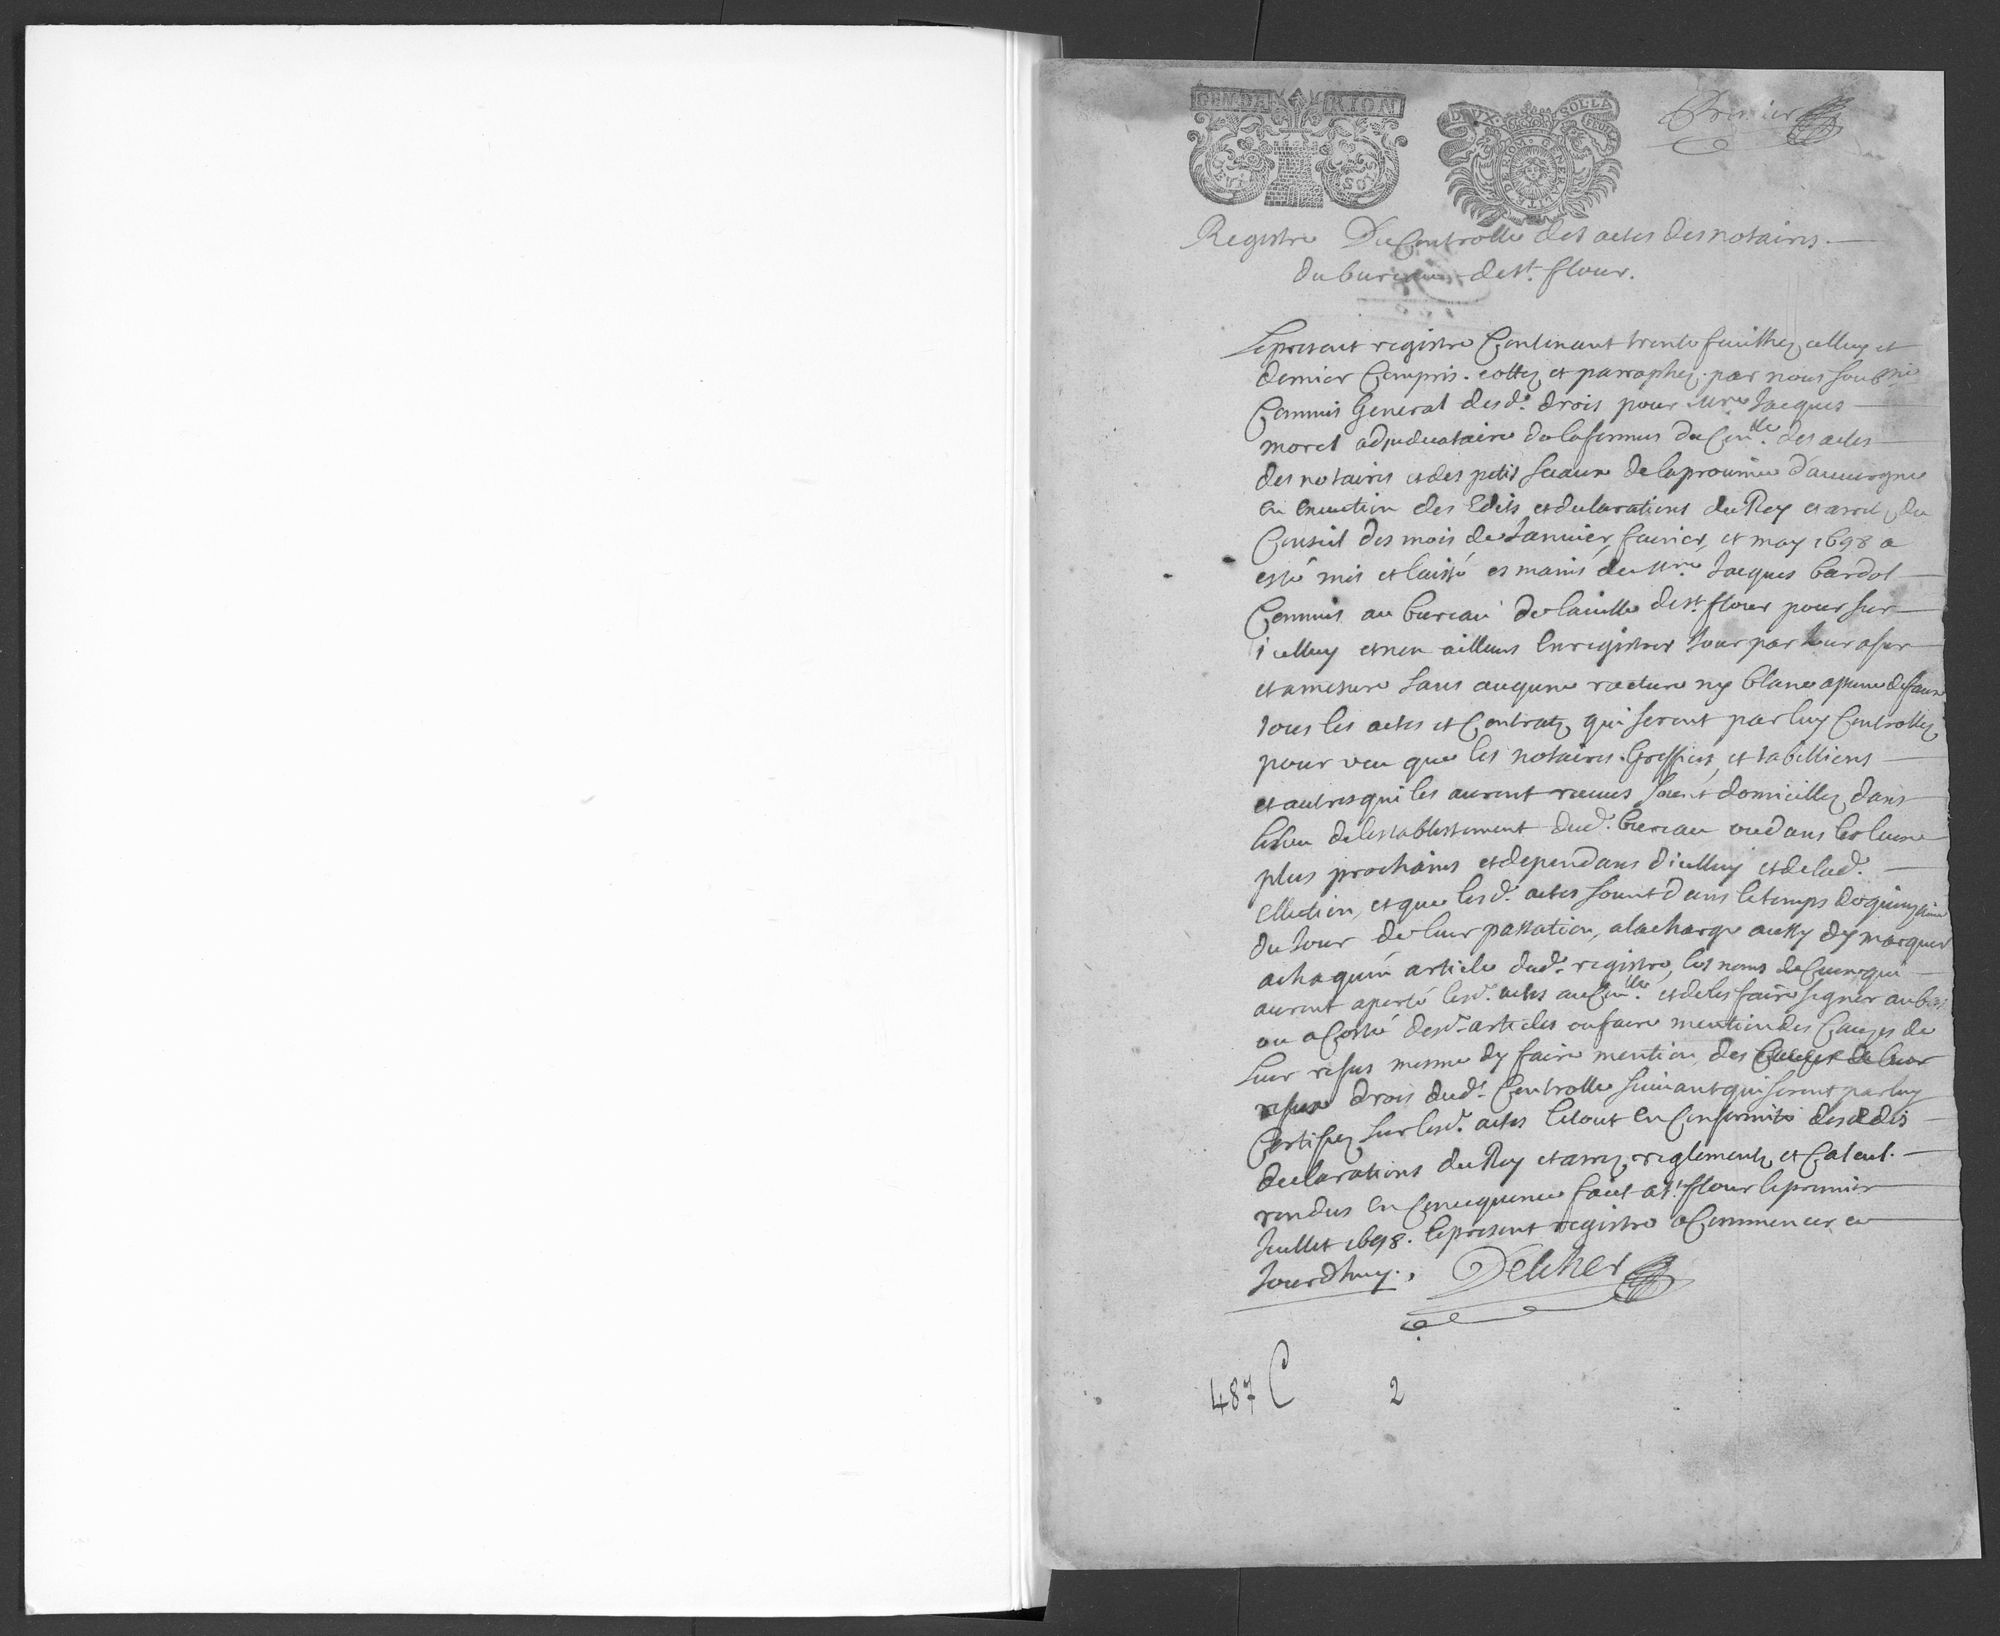 GEN. DE RION
DEUX SOLS LA FEUILLE
GENERALITE DE RIOM
Premier
Registre Du Controlle des actes des notaires
du bureau de st. flour.
Le present registre Contenant trente feuilhes celluy et
dernier Compris. cottez et parraphez par nous soubs.né
Commis General desd. drois pour Mre Jacques
morel adjudicataire de la ferme du Con.lle des actes
des notaires et des petis sceaux de la province d'auvergne
en execution des Edits et declarations du Roy et arrestz du
Conseil des mois de Janvier, fevrier, et may 1698 a
esté mis et laissé es mains de Mre Jacques bardol
Commis au bureau de la ville de st. flour pour sur
icelluy et non ailleurs Enregistrer Jour par Jour a fur
et a mesure sans aucune racture ny blanc a peine de faux
tous les actes et Contratz qui seront par luy Controllez
pour veu que les notaires. Greffiers, et tabellions
et autres qui les auront receus soient domicillez dans
le lieu de lestablissement dud. bureau ou dans les lieux
plus prochains et dependans d'icelluy et de lad.
Ellection, et que lesd. actes soint dans le temps de quinzaine
du Jour de leur passation, a la charge aussy dy marquer
a chaquun article dud. registre, les noms de Ceux qui
auront aporté lesd. actes au Con.lle et de les faire signer au bas
ou a Costé desd. articles ou faire mention des Causes de
leur refus mesme dy faire mention des Causes de leur
refus drois dud. Controlle suivant qui seront par luy
Certifiez sur lesd. actes le tout en Conformité des Edis
declarations du Roy et arrez, reglementz et
rendus en Consequence fait a st. flour le premier
Juillet 1698. le present registre a Commencer ce
Jourdhuy.
Delcher
487 C 2